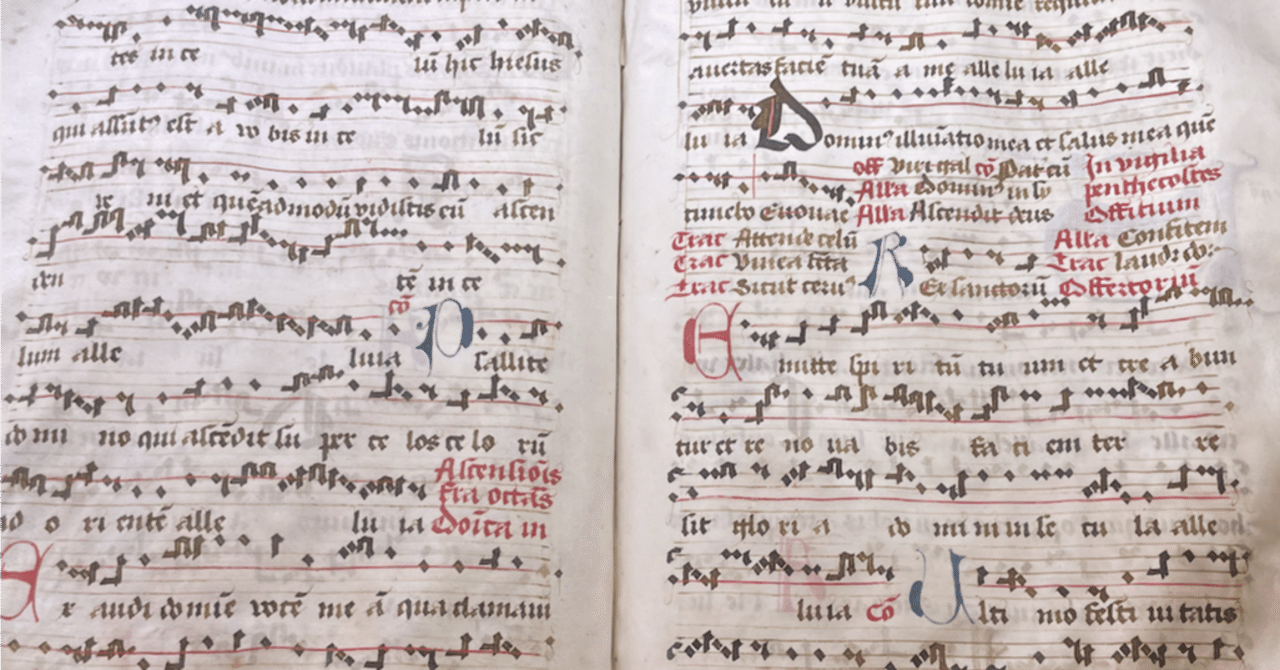 tes in ce lū hic hiesus
qui assūtꝰ est a vo bis in ce lū sic
ve ni et queadmodū vidistis eū ascen
den tē in ce
cō
lum alle luia Psallite
do mi no qui ascēdit su per ce los ce lo rū
Ascensiōis
fra octās
ad o ri entē alle lu ia Doīca in
Ex audi domie vocē me ā qua clamaui
auertas faciē tuā a me alle lu ia alle
lu ia Dominꝰ illuīatio mea et salus mea quē
off Viri gal cō Pat cū In vigilia
Alla Dominꝰ in sy penthecostes
timebo Euouae Alla Ascendit deus Offitium
Trac Attende celū Alla Confitem
Trac Vinea fcta R Trac laud
Trac Sicut ceruꝰ Ex sanctorū Offertoriū
Emitte spi ri tū tu um et cre a bun
tur et re no ua bis fa ci em ter re
sit glo ri a do mi ni in se cu la alle
luia Cō Ulti mo festi ui tatis